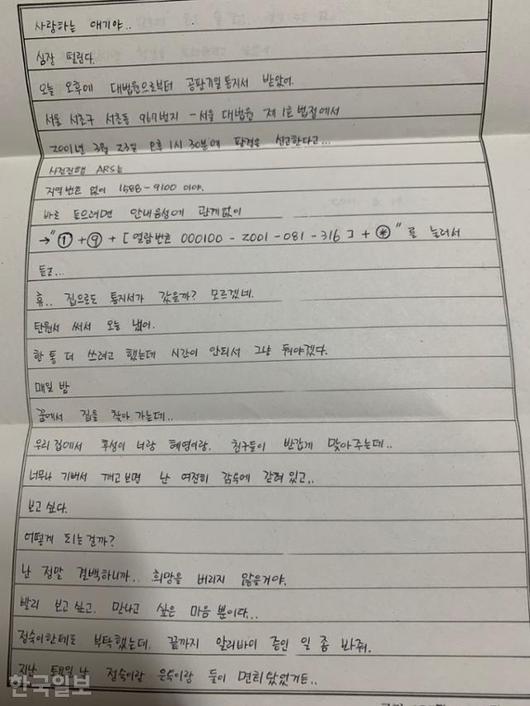 사랑하는 애기야..
심장 떨린다.
오늘 오후에 대법원으로부터 공판기일통지서 받았어.
서울 서초구 서초동 967번지 - 서울 대법원 제 1호 법정에서
2001년 3월 23일 오후 1시 30분에 판결을 선고한다고...
사건진행 ARS는
지역번호 없이 1588-9100 이야.
바로 들으려면 안내음성에 관계없이
→"① + ⑨ + [열람번호 000100 - 2001 - 081 - 316] + ⊛"를 눌러서
듣고...
휴.. 집으로도 통지서가 갔을까? 모르겠네.
탄원서 써서 오늘 냈어.
한 통 더 쓰려고 했는데 시간이 안되서 그냥 둬야겠다.
매일 밤
꿈에서 집을 찾아 가는데..
우리 집에서 후성이 너랑 혜영이랑. 친구들이 반갑게 맞아주는데..
너무나 기뻐서 깨고보면 난 여전히 감옥에 갇혀 있고..
보고 싶다.
어떻게 되는걸까?
난 정말 결백하니까.. 희망을 버리지 않을거야.
빨리 보고싶고. 만나고 싶은 마음 뿐이다..
정숙이한테도 부탁했는데. 끝까지 알리바이 증인 일 좀 봐줘.
지난 토요일 난 정숙이랑 은숙이랑 둘이 면회 왔었거든..
한국일보